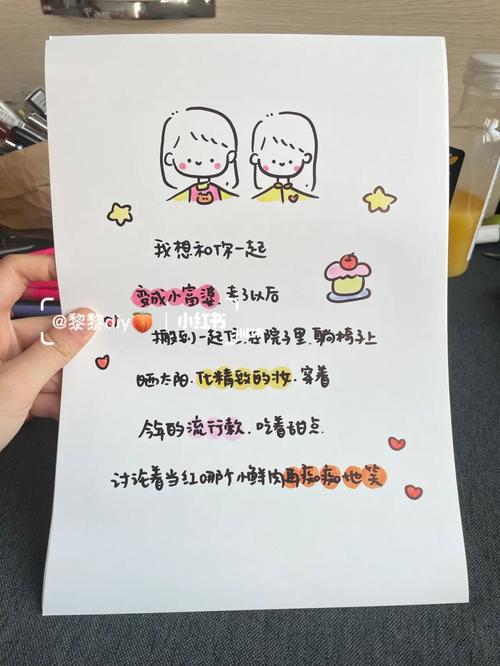 我想和你一起
变成小富婆.老了以后
搬到一起 在院子里.躺椅子上
晒太阳.化精致的妆.穿着
今年的流行款.吃着甜点.
讨论着当红哪个小鲜肉再痴痴地笑
@黎黎diy🍑 | 小红书